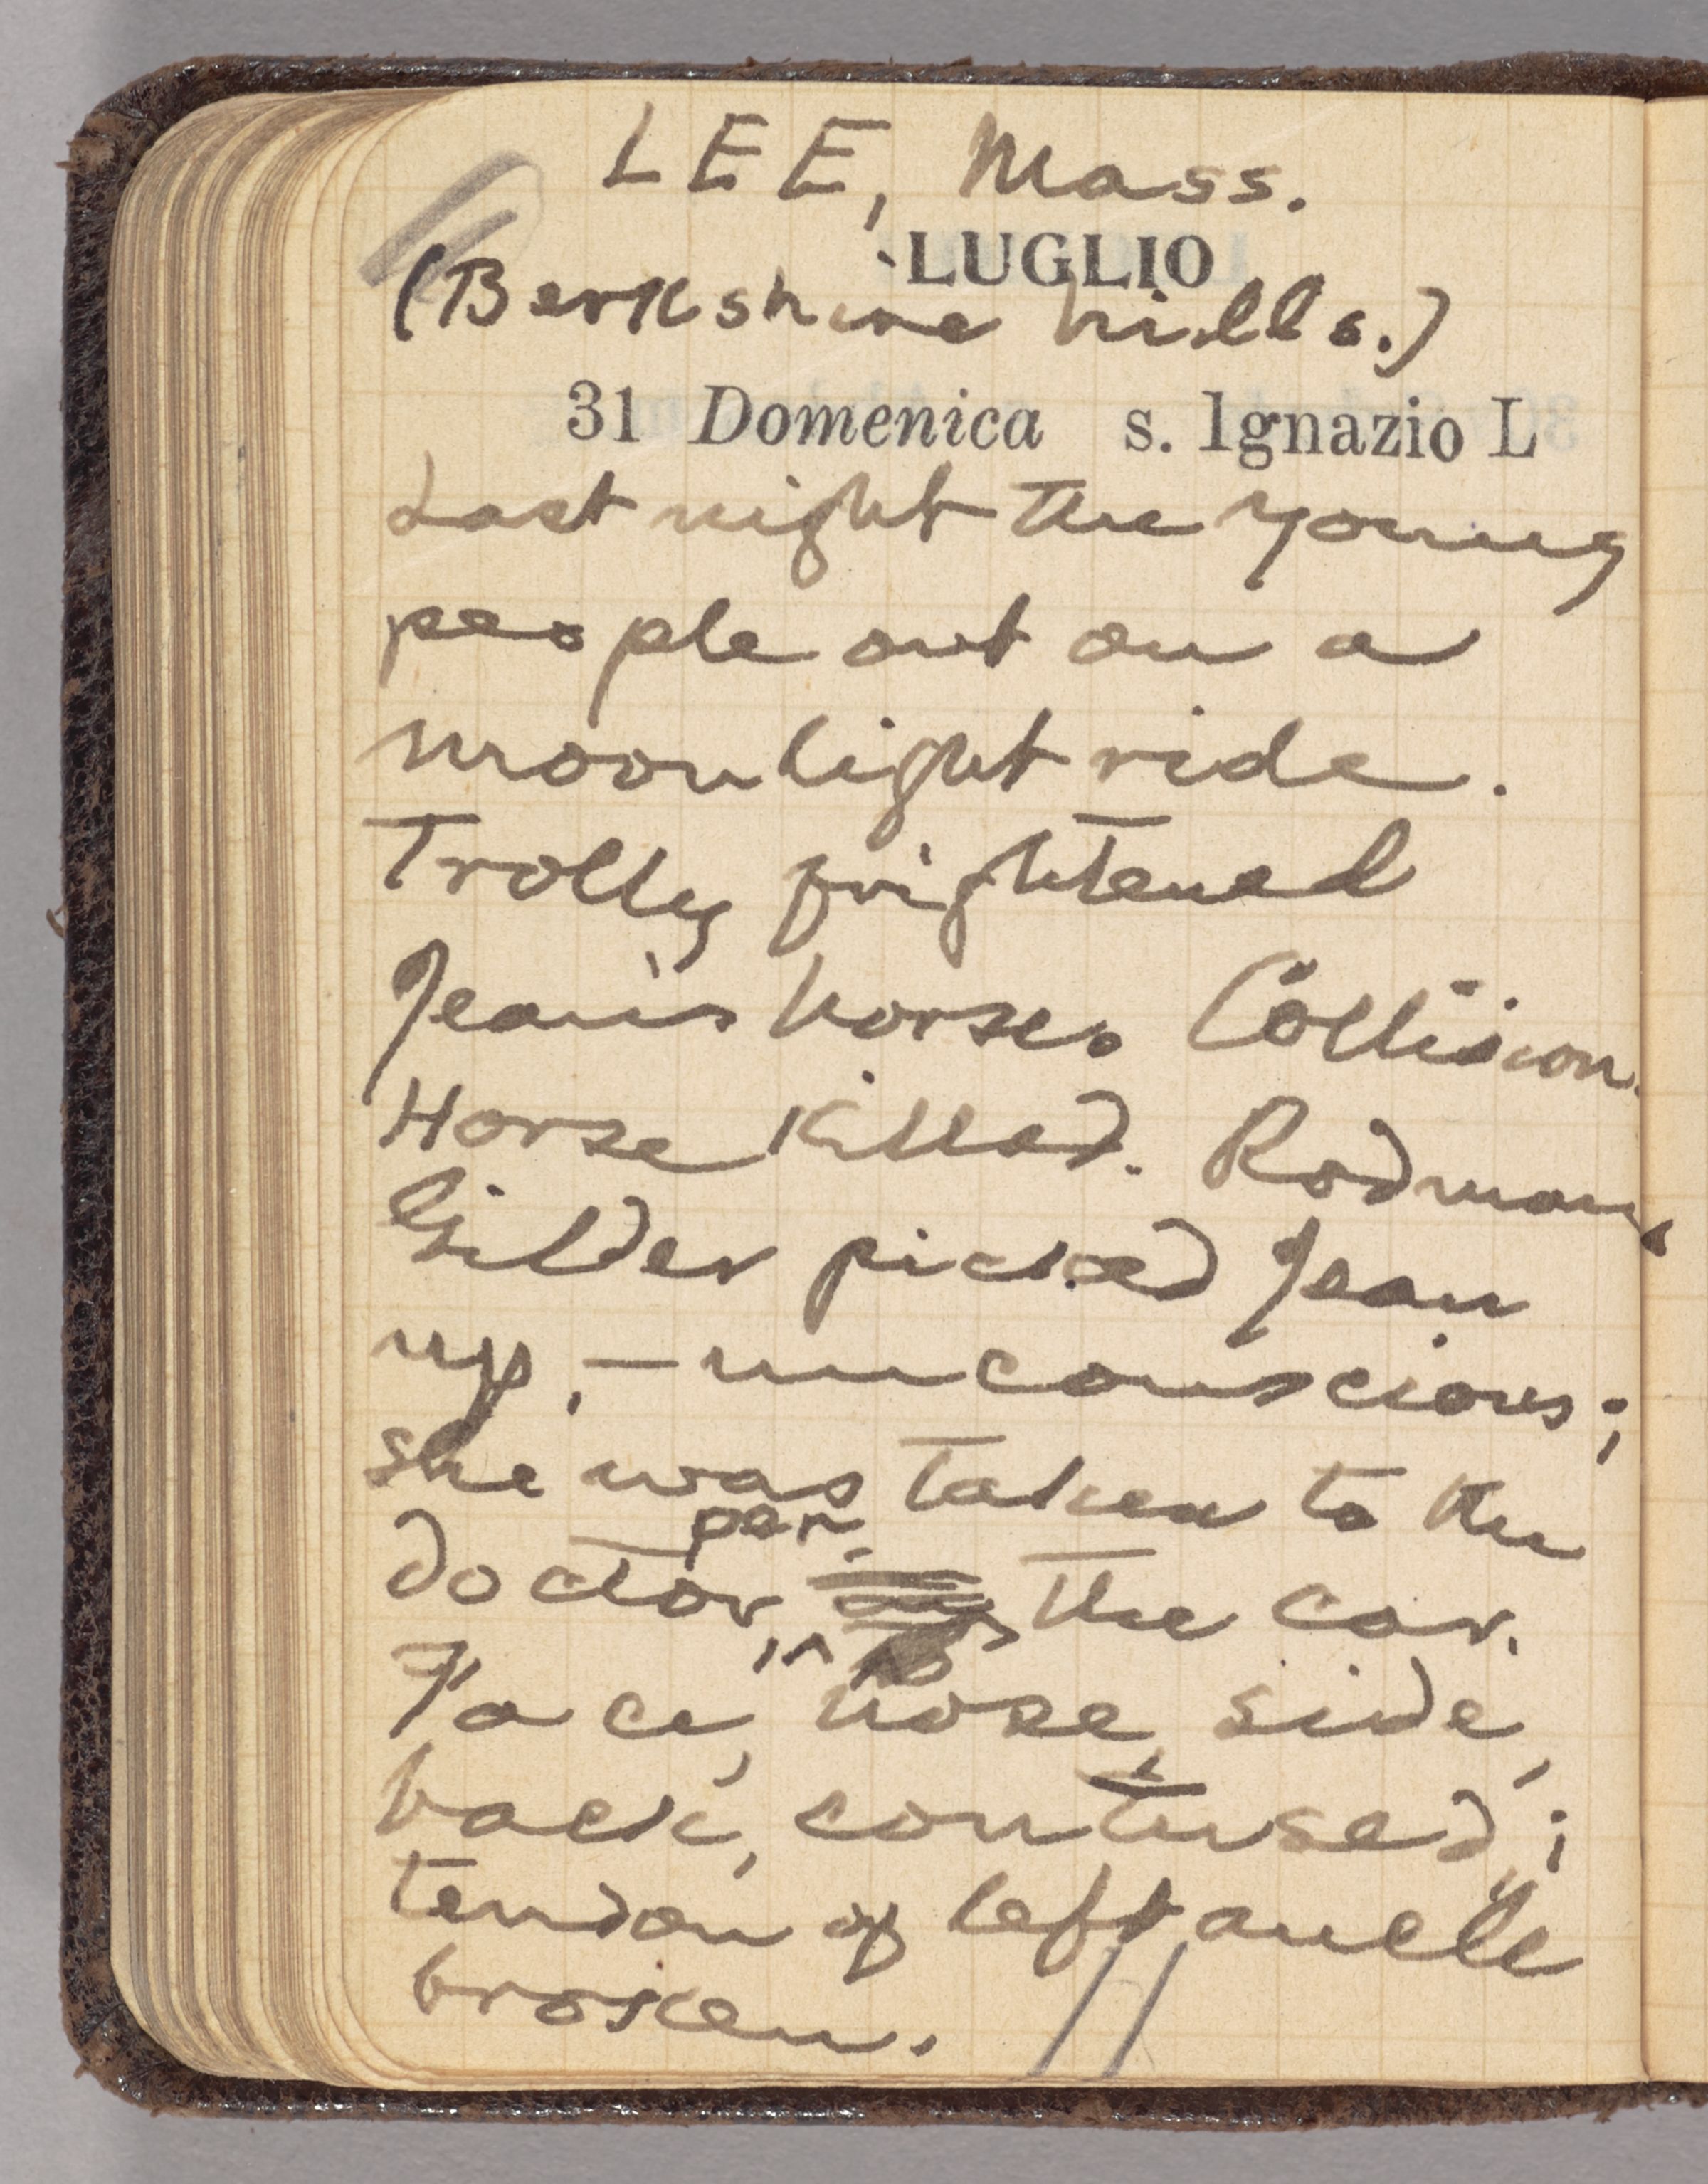 LEE, Mass.
LUGLIO
(Berkshire hills.)
31 Domenica s. Ignazio L
Last night the young
people out on a
moonlight ride.
Trolley frightened
Jean's horse. Collision.
Horse killed. Rodman
Gilder picked Jean
up, — unconscious;
she was taken to the
per
doctor, the car.
Face, nose, side,
back, contused;
tendon of left ancle
broken. //